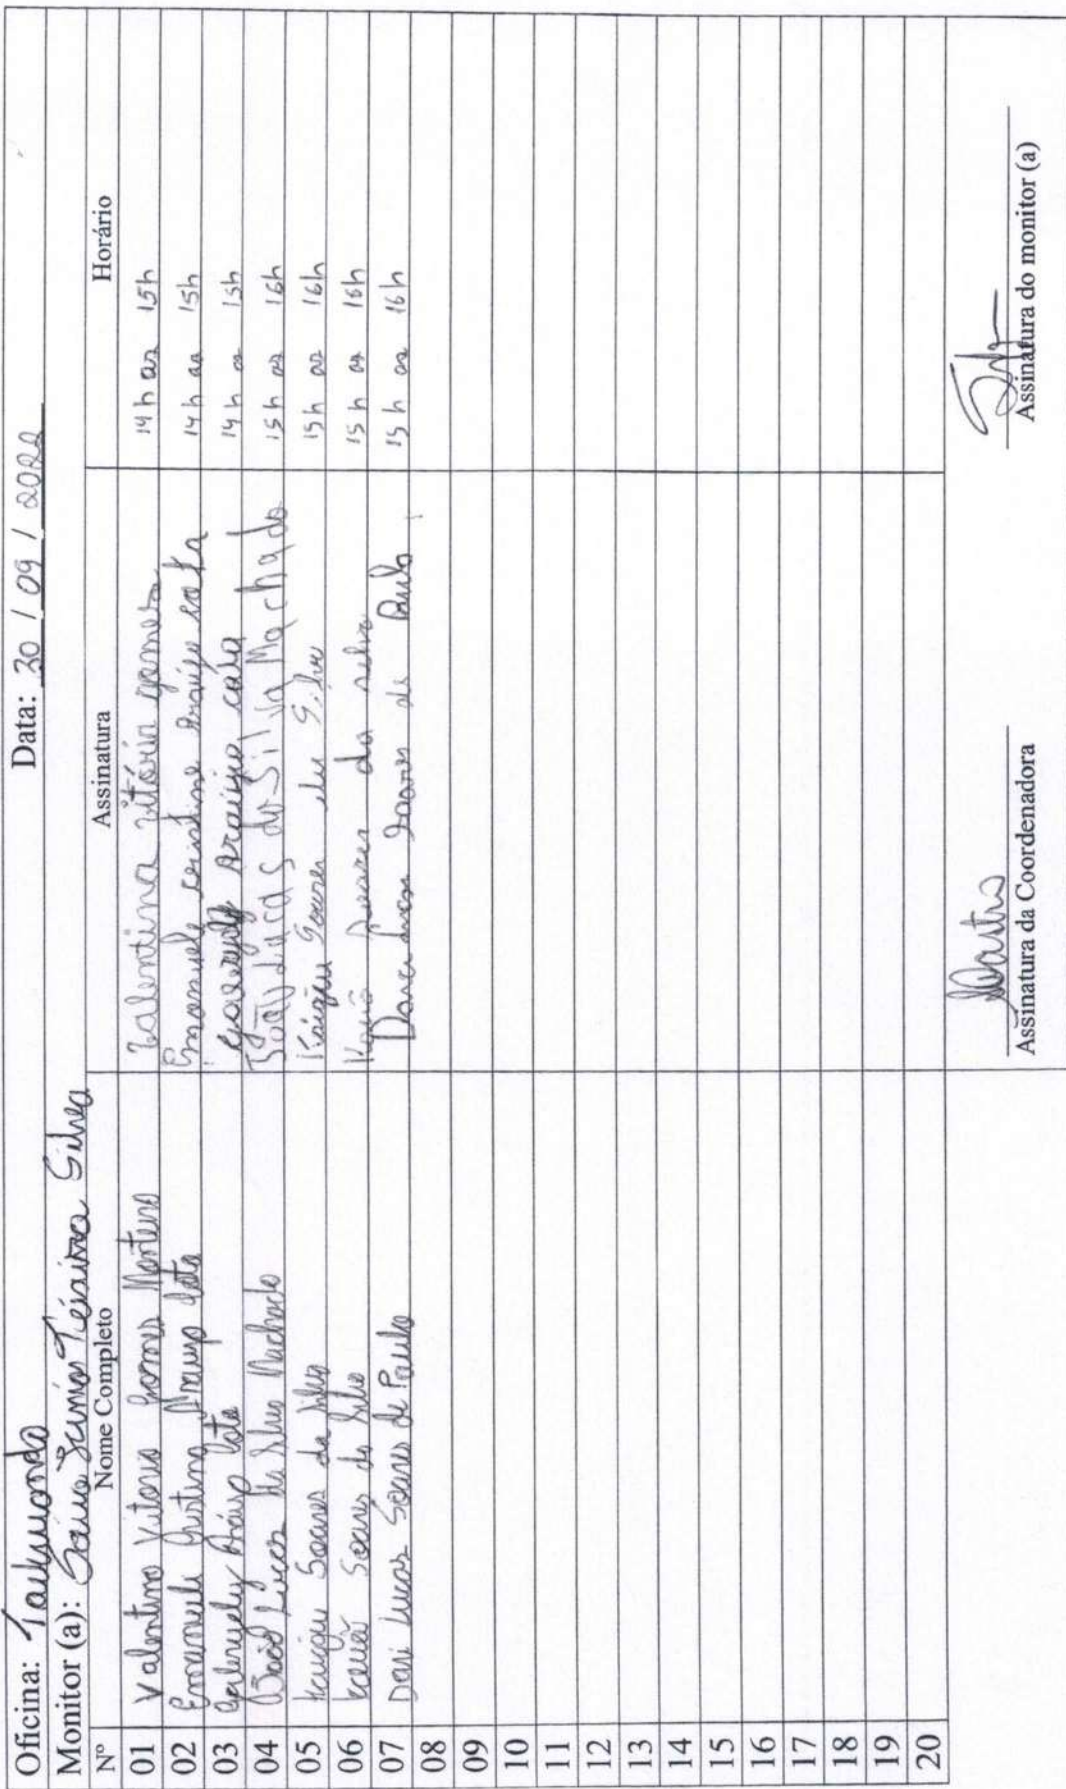 Oficina: Taekwondo Data: 30 / 09 / 2022
Monitor (a): Júnior Teixeira Silva
Nº Nome Completo Assinatura Horário
01 Valentina Vitoria Gomes Monteiro Valentina vitória gomes 14h as 15h
02 Emanuele Cristina Araujo Cota Emanuele cristine Araújo cota 14h as 15h
03 Araujo Cota Araújo cota 14h as 15h
04 João Lucas da Silva Machado João Lucas da Silva Machado 15h as 16h
05 Kaique Soares da Silva Kaique Soares da Silva 15h as 16h
06 Kauã Soares da Silva Kauã Soares da silva 15h as 16h
07 Davi Lucas Soares de Paula Davi Lucas Soares de Paula 15h as 16h
08
09
10
11
12
13
14
15
16
17
18
19
20
Assinatura da Coordenadora Assinatura do monitor (a)